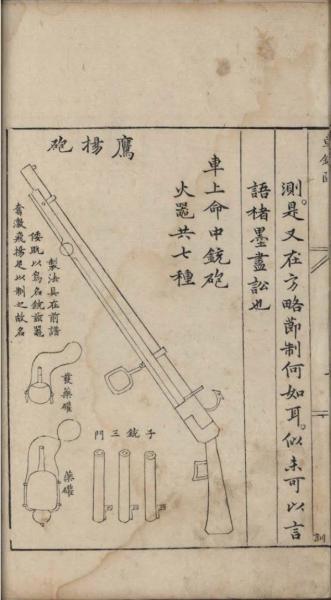 測是又在方略節制何如耳似未可以言
語楮墨盡訟也
車上命中銃砲
火器共七種
鷹揚砲
製法具在前譜
倭既以鳥名銃茲器
奮激飛揚足以制之故名
發藥罐
藥罐
子銃三門